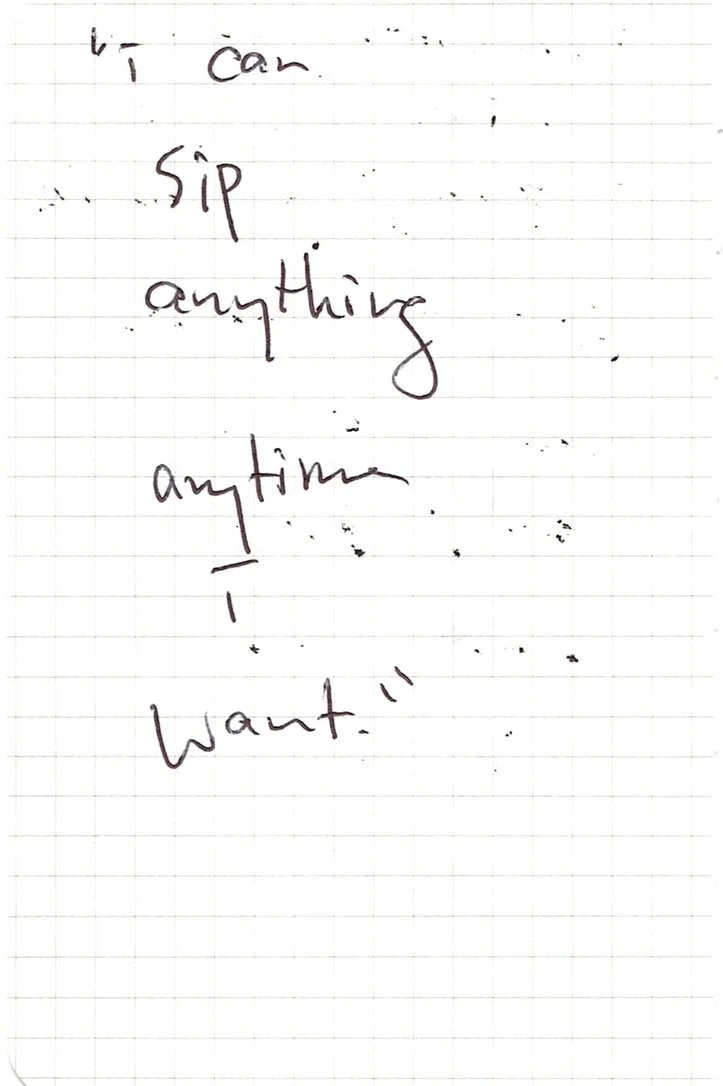 "I can
sip
anything
anytime
I
want."